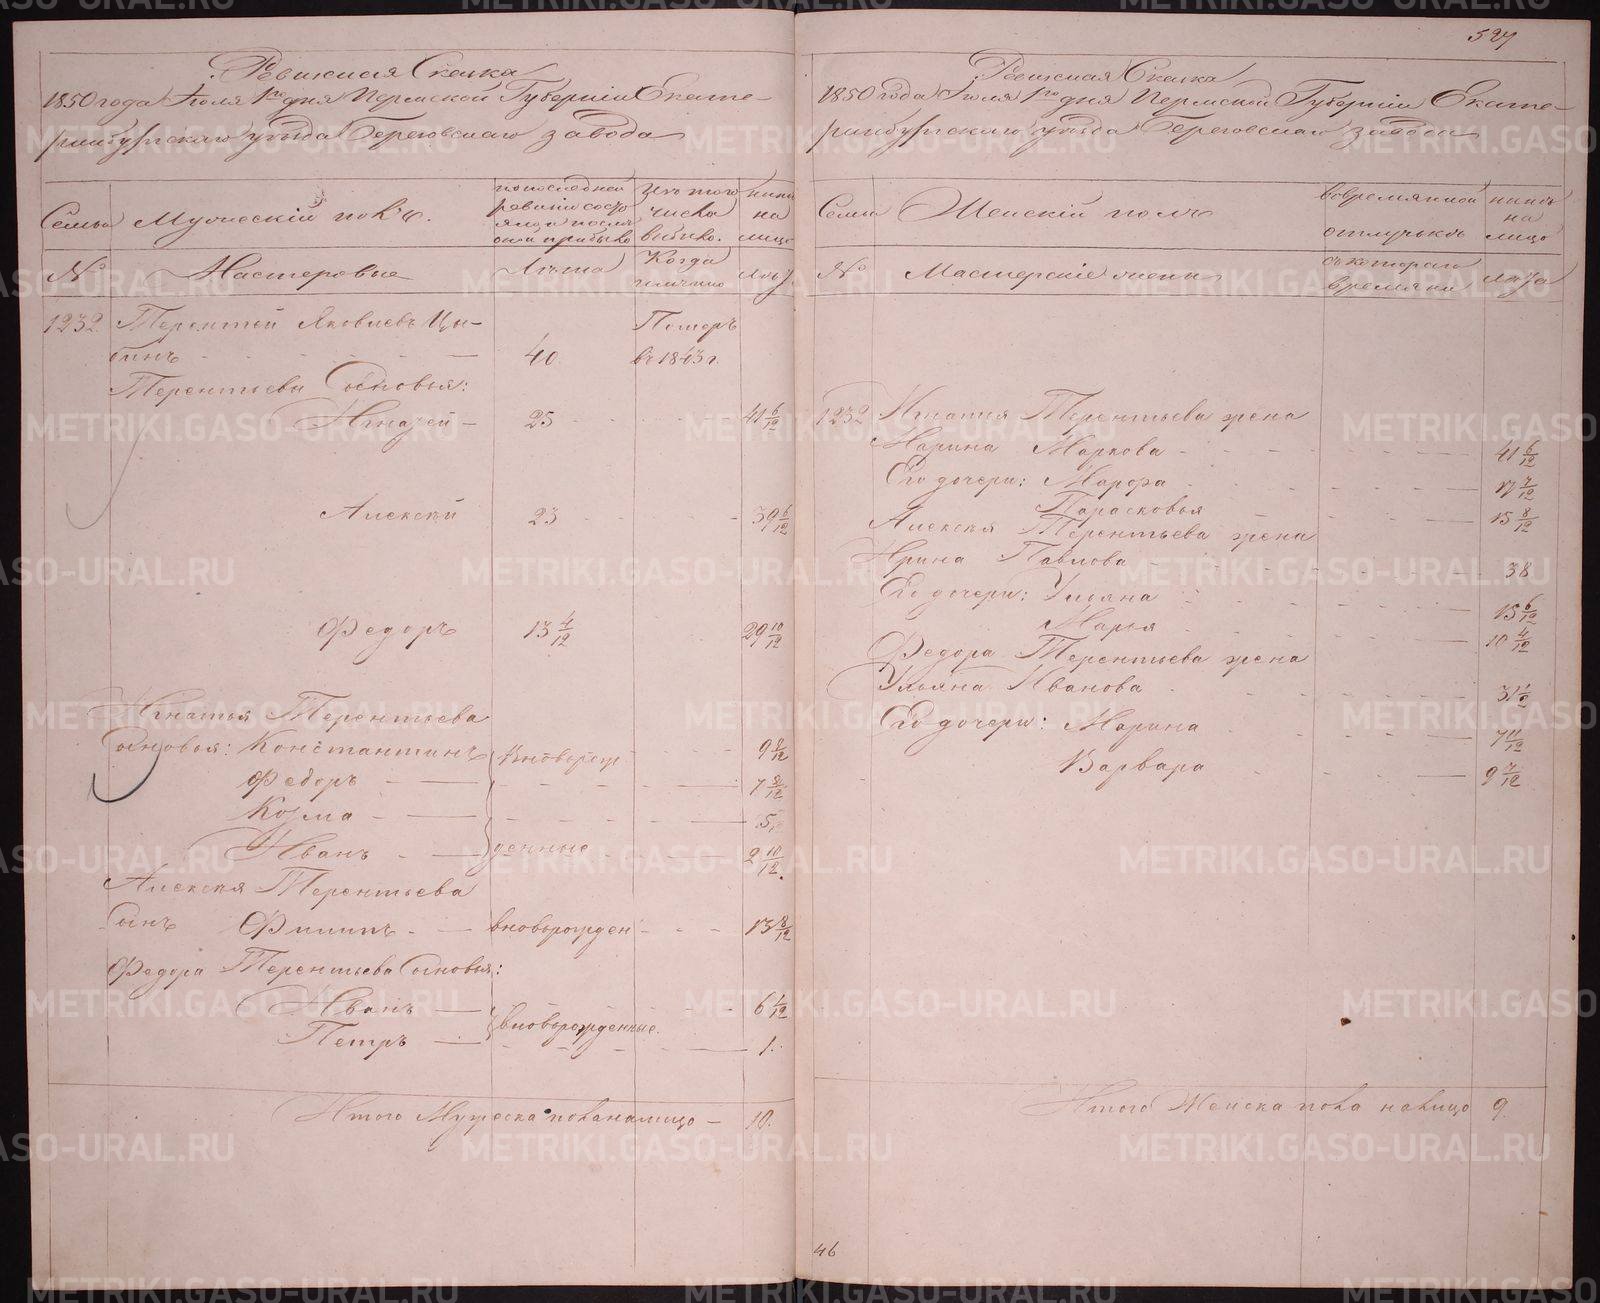 527
Ревизская Сказка
1850 года Июля 1го дня Пермской Губернiи Екате-
ринбургскаго уезда Березовскаго завода
Семьи
Мужескiй полъ.
по последней ревизiи состояло и после оной прибыло
Изъ того числа выбыло.
ныне на лицо
№
Мастеровые
Лета
Когда именно
Лета
1232
Терентей Яковлевъ Цы-
бинъ 40 Померъ въ 1843 г.
Терентьевы Сыновья:
Игнатей 25 41 6/12
Алексей 23 39 6/12
Федоръ 13 4/12 29 10/12
Игнатья Терентьева
Сыновья: Константинъ Новорож 9 8/12
Федоръ 7 8/12
Козма 5.
Иванъ денные 2 10/12.
Алексея Терентьева
Сынъ Филипъ вновьрожден 13 8/12
Федора Терентьева Сыновья:
Иванъ вновьрожденные. 6 4/12
Петръ 1.
Итого Мужеска пола налицо 10.
Ревизская Сказка
1850 года Июля 1го дня Пермской Губернiи Екате-
ринбургскаго уезда Березовскаго завода
Семьи
Женскiй полъ
во временной отлучке
ныне на лицо
№
Мастерскiе жены
съ котораго времяни
Лета
1232 Игнатья Терентьева жена
Марина Маркова 41 6/12
Его дочери: Марфа 17 7/12
Парасковья 15 8/12
Алексея Терентьева жена
Ирина Павлова 38
Его дочери: Ульяна 15 6/12
Марья 10 4/12
Федора Терентьева жена
Ульяна Иванова 31 1/2
Его дочери: Марина 7 11/12
Варвара 9 7/12
Итого Женска пола налицо 9.
46
METRIKI.GASO-URAL.RU